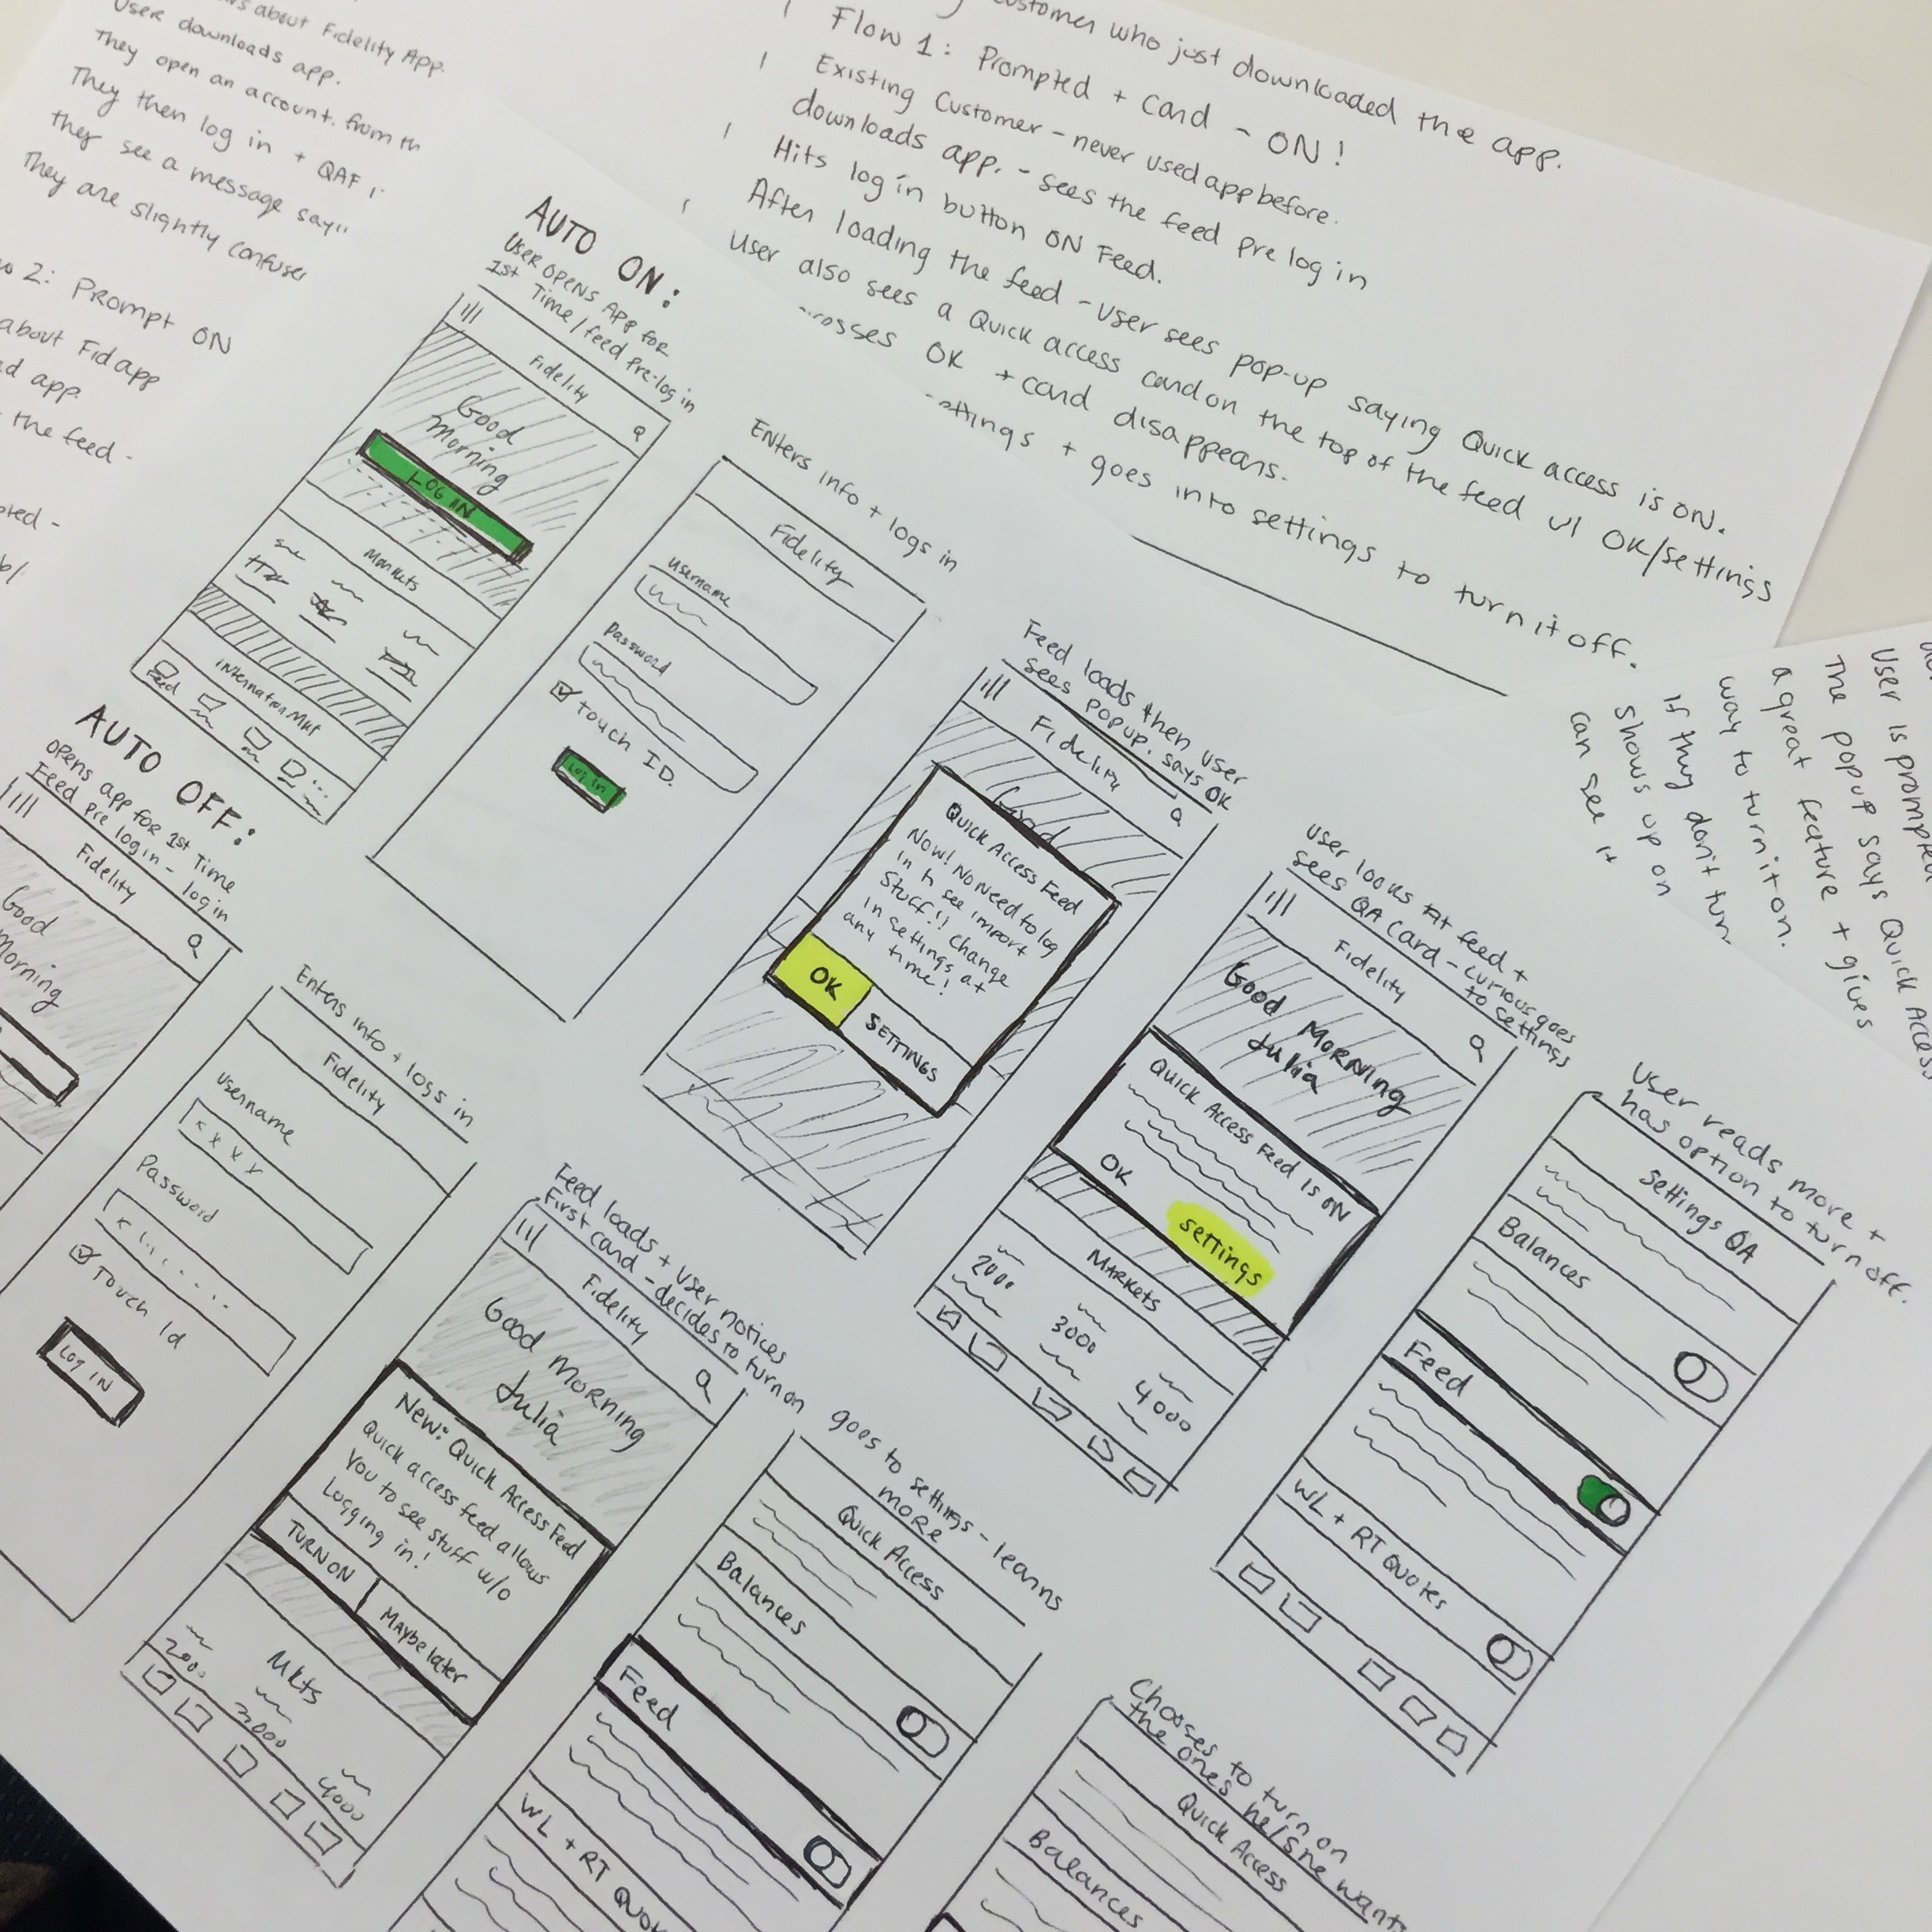 about Fidelity App.
User downloads app.
They open an account. from th
They then log in + QAF i
they see a message say"
They are slightly confuse
2: Prompt ON
about Fid app
app.
the feed -
customer who just downloaded the app.
Flow 1: Prompted + Card - ON!
Existing Customer - never used app before.
downloads app. - sees the feed pre log in
Hits log in button ON Feed.
After loading the feed - user sees pop-up saying Quick access is ON.
User also sees a Quick access card on the top of the feed w/ OK/settings
OK + card disappears.
+ goes into settings to turn it off.
User is prompted
The popup says Quick Access
a great feature + gives
way to turn it on.
If they don't turn
Shows up on
can see it
AUTO ON:
USER OPENS APP for
1st Time/feed pre-log in
Fidelity
Good
Morning
LOG IN
Markets
International Mkt
Feed
Enters info + logs in
Fidelity
username
password
Touch ID.
Log in
Feed loads then user
sees popup. says OK
Fidelity
Good
Quick Access Feed
Now! No need to log
in to see import
Stuff!! Change
in settings at
any time!
OK
SETTINGS
User looks at feed +
sees QA card - curious goes
to settings
Fidelity
Good Morning
Julia
Quick Access Feed is ON
OK
settings
Markets
2000
3000
4000
User reads more +
has option to turn off.
Settings QA
Balances
Feed
WL + RT Quotes
AUTO OFF:
opens app for 1st Time
Feed pre log in - log in
Fidelity
Good
Morning
Enters info + logs in
Fidelity
Username
x x x x
Password
Touch Id
Log IN
Feed loads + user notices
First card - decides to turn on
Fidelity
Good Morning
Julia
New: Quick Access Feed
Quick access feed allows
You to see stuff w/o
Logging in!
TURN ON
Maybe later
Mkts
2000
3000
4000
goes to settings - learns
more
Quick Access
Balances
Feed
WL + RT Quo
Chooses to turn on
the ones he/she wants
Quick Access
Balances